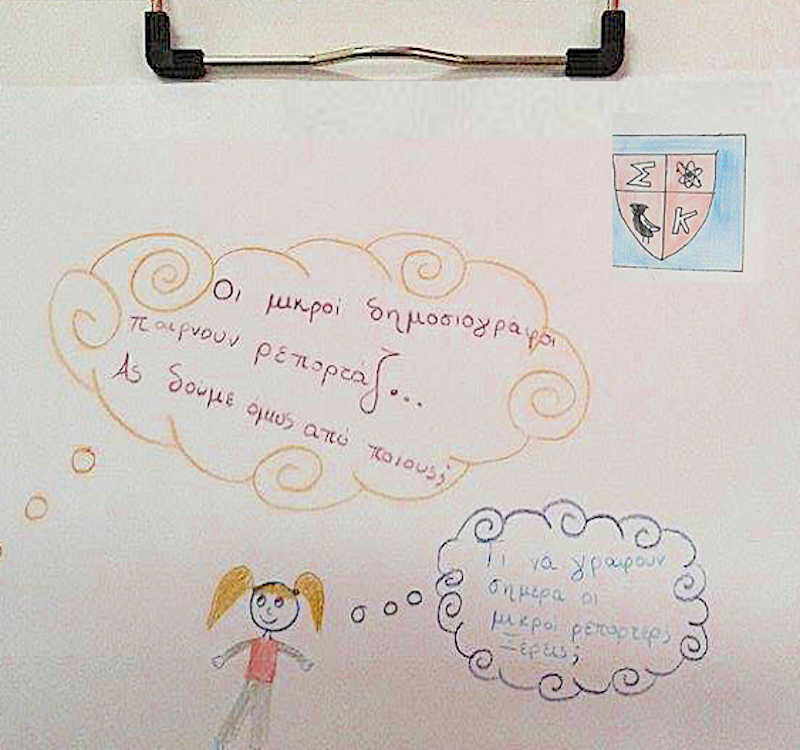 Σ
Κ
Οι μικροί δημοσιογράφοι
παίρνουν ρεπορτάζ...
Ας δούμε όμως από ποιους;
Τι να γράφουν
σήμερα οι
μικροί ρεπόρτερς
Ξέρεις;